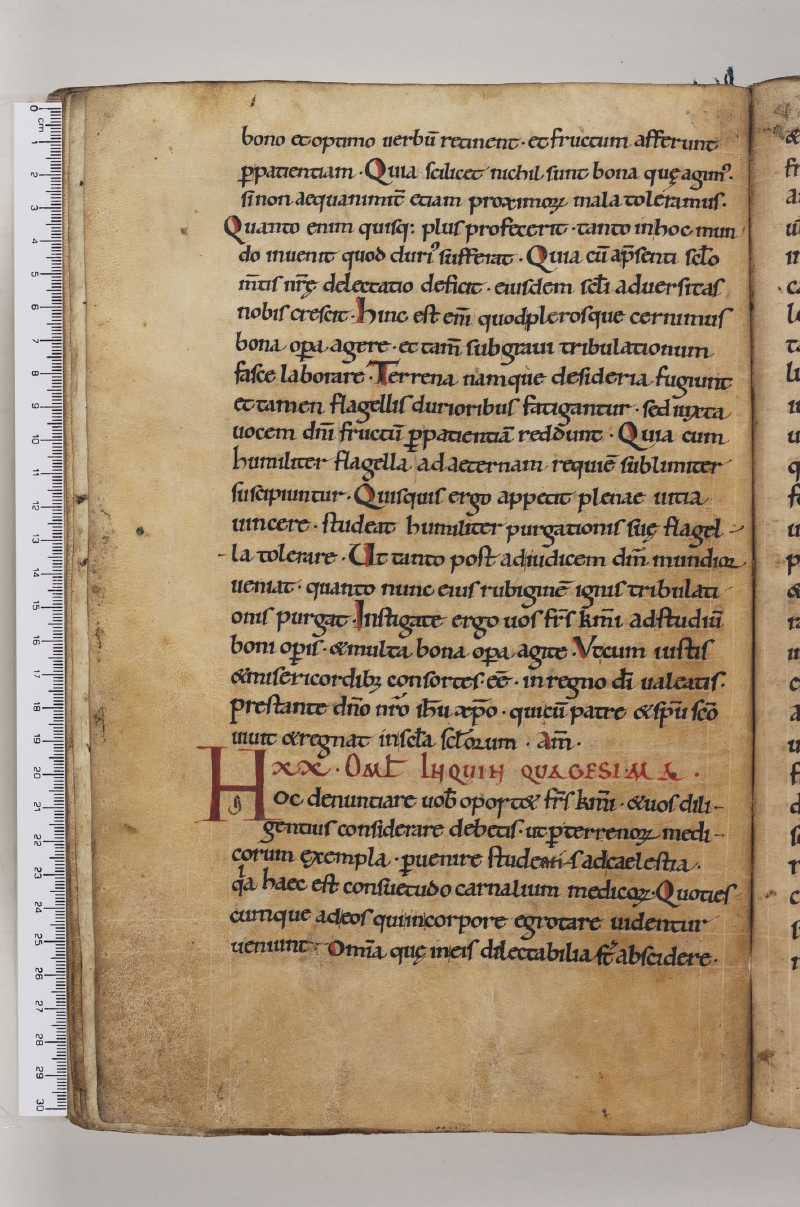 bono et optimo uerbū retinent · et fructum afferunt
ꝑpatientiam · Quia scilicet nichil sunt bona quę agimꝰ.
si non aequanimit̄ etiam proximoꝝ mala toleramus.
Quanto enim quisq: plus profecerit · tanto in hoc mun
do inuenit quod duriꝰ sufferat · Quia cū ap̄senti scl̄o
m̄tis nr̄ę delectatio deficit · eiusdem scl̄i aduersitas
nobis crescit · hinc est em̄ quod plerosque cernimus
bona oꝑa agere · et tam̄ sub graui tribulationum
fasce laborare · Terrena namque desideria fugiunt
et tamen flagellis durioribus fatigantur · sed iuxta
uocem dn̄i fructū ꝑpatientiā reddunt · Quia cum
humiliter flagella ad aeternam requiē sublimiter
suscipiuntur · Quisquis ergo appetit plenae uitia
uincere · studeat humiliter purgationis suę flagel -
- la tolerare · Ut tanto post ad iudicem dm̄ mundioꝝ
ueniat · quanto nunc eius rubiginē ignis tribulati
onis purgat · Instigate ergo uos fr̄s km̄i ad studiū
boni oꝑis · & multa bona oꝑa agite · Vt cum iustis
& misericordibꝫ consortes ēē · in regno dī ualeatis.
prestante dn̄o nr̄o ih̄u xp̄o · qui cū patre & sp̄u sc̄o
uiuit & regnat in scl̄a scl̄orum · am̄ ·
XX · OML̄ IN QUINQUAGESIMA ·
Hoc denuntiare uob̄ oport& fr̄s km̄i · & uos dili -
gentius considerare debetis · ut ꝑ terrenoꝝ medi -
corum exempla · ꝑuenire studeatis ad caelestia .
qͣa haec est consuetudo carnalium medicoꝝ · Quoties
cumque ad eos qui in corpore egrotare uidentur
ueniunt · Omīa quę in eis dilectabilia st̄ abscidere ·